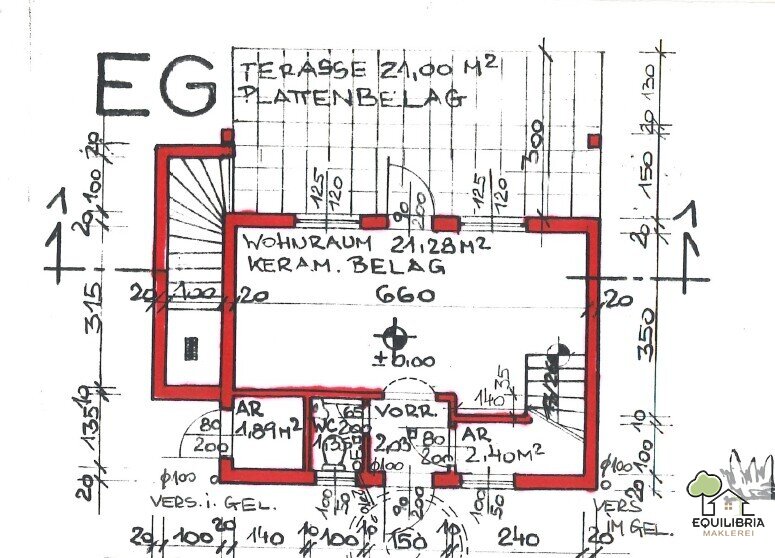 EG
TERASSE 21,00 M²
PLATTENBELAG
130
20
150
20
350
10
100
20
300
20
100
20
315
10
135
20
125
120
90
200
125
120
WOHNRAUM 21,28M²
KERAM. BELAG
20 100 20
660
20
±0,00
140 35
AR
1,89M²
80
200
WC
VORR.
2,03
80
200
AR
2,40M²
Φ100
VERS. i. GEL.
Φ100
90
200
100
50
Φ100
VERS
IM GEL.
20 100 20 140 10 100 10 150 10 240 20
EQUILIBRIA
MAKLEREI